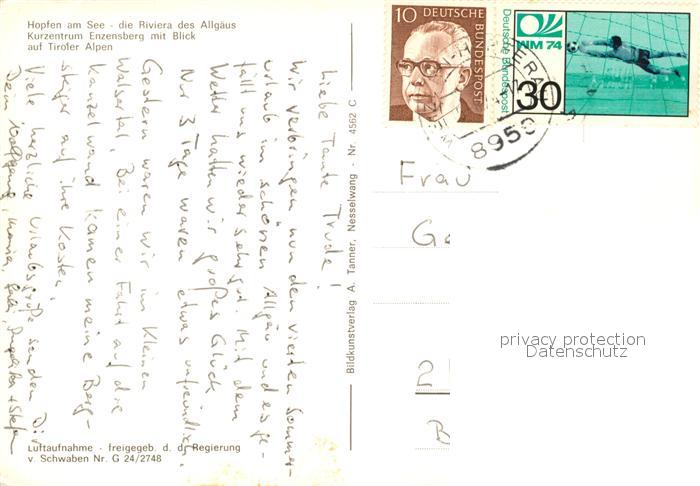 Hopfen am See - die Riviera des Allgäus
Kurzentrum Enzensberg mit Blick
auf Tiroler Alpen
Liebe Tante Trude!
Wir verbringen nun den vierten Sommer-
urlaub im schönen Allgäu und es ge-
fällt uns wieder sehr gut. Mit dem
Wetter hatten wir großes Glück
Nur 3 Tage waren etwas unfreundlich.
Gestern waren wir im Kleinen
Walsertal. Bei einer Fahrt auf die
Kanzelwand kamen meine Berg-
steiger auf ihre Kosten.
Viele herzliche Urlaubsgrüße senden Dir
Dein Wolfgang, Maria,
Luftaufnahme - freigegeb. d. d. Regierung
v. Schwaben Nr. G 24/2748
Bildkunstverlag A. Tanner, Nesselwang · Nr. 4562 C
10 DEUTSCHE
BUNDESPOST
Deutsche Bundespost
WM 74
30
8959
Frau
Ge
2
B
privacy protection
Datenschutz